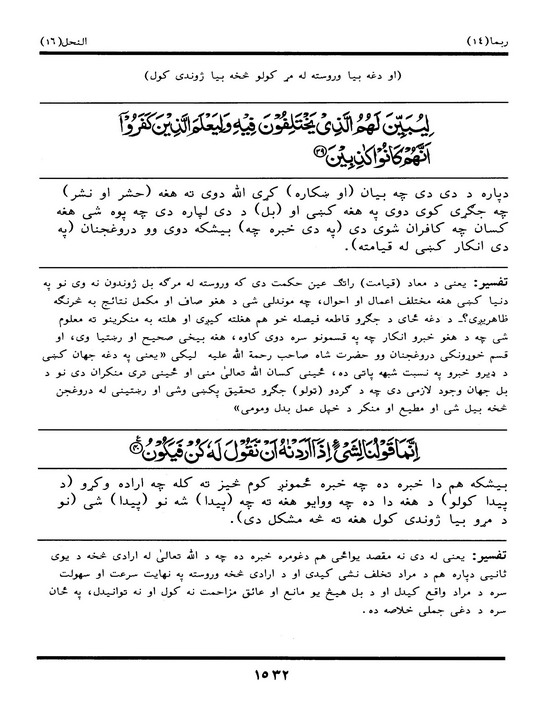 ربما(١٤)
النحل(١٦)
(او دغه بیا وروسته له مړ کولو څخه بیا ژوندی کول)
لِيُبَيِّنَ لَهُمُ الَّذِىْ يَخْتَلِفُوْنَ فِيْهِ وَلِيَعْلَمَ الَّذِيْنَ كَفَرُوْۤا
اَنَّهُمْ كَانُوْا كٰذِبِيْنَ ﴿٣٩﴾
دپاره د دی دی چه بیان (او ښکاره) کړی الله دوی ته هغه (حشر او نشر)
چه جګړی کوی دوی په هغه کښی او (بل) د دی لپاره دی چه پوه شی هغه
کسان چه کافران شوی دی (په دی خبره چه) بیشکه دوی وو دروغجنان (په
دی انکار کښی له قیامته).
تفسیر: یعنی د معاد (قیامت) راتګ عین حکمت دی که وروسته له مرګه بل ژوندون نه وی نو په
دنیا کښی هغه مختلف اعمال او احوال، چه موندلی شی د هغو صاف او مکمل نتائج به څرنګه
ظاهریږی؟۔ د دغه ځای د جګړو قاطعه فیصله خو هم هغلته کیږی او هلته به منکرینو ته معلوم
شی چه د هغو خبرو انکار چه په قسمونو سره دوی کاوه، هغه بیخی صحیح او رښتیا وی، او
قسم خوړونکی دروغجنان وو حضرت شاه صاحب رحمة الله علیه لیکی «یعنی په دغه جهان کښی
د ډیرو خبرو په نسبت شبهه پاتی ده، ځینی کسان الله تعالیٰ منی او ځینی تری منکران دی نو د
بل جهان وجود لازمی دی چه د ګردو (ټولو) جګړو تحقیق پکښی وشی او رښتینی له دروغجن
څخه بیل شی او مطیع او منکر د خپل عمل بدل ومومی»
اِنَّمَا قَوْلُنَا لِشَىْءٍ اِذَاۤ اَرَدْنٰهُ اَنْ نَّقُوْلَ لَهٗ كُنْ فَيَكُوْنُ ﴿٤٠﴾
بیشکه هم دا خبره ده چه خبره ځمونږ کوم څیز ته کله چه اراده وکړو (د
پیدا کولو) د هغه دا ده چه ووایو هغه ته چه (پیدا) شه نو (پیدا) شی (نو
د مړو بیا ژوندی کول هغه ته څه مشکل دی).
تفسیر: یعنی له دی نه مقصد یواځی هم دغومره خبره ده چه د الله تعالیٰ له ارادی څخه د یوی
ثانیی دپاره هم د مراد تخلف نشی کیدی او د ارادی څخه وروسته په نهایت سرعت او سهولت
سره د مراد واقع کیدل او د بل هیڅ یو مانع او عائق مزاحمت نه کول او نه توانیدل، په ځان
سره د دغی جملی خلاصه ده.
١٥٣٢